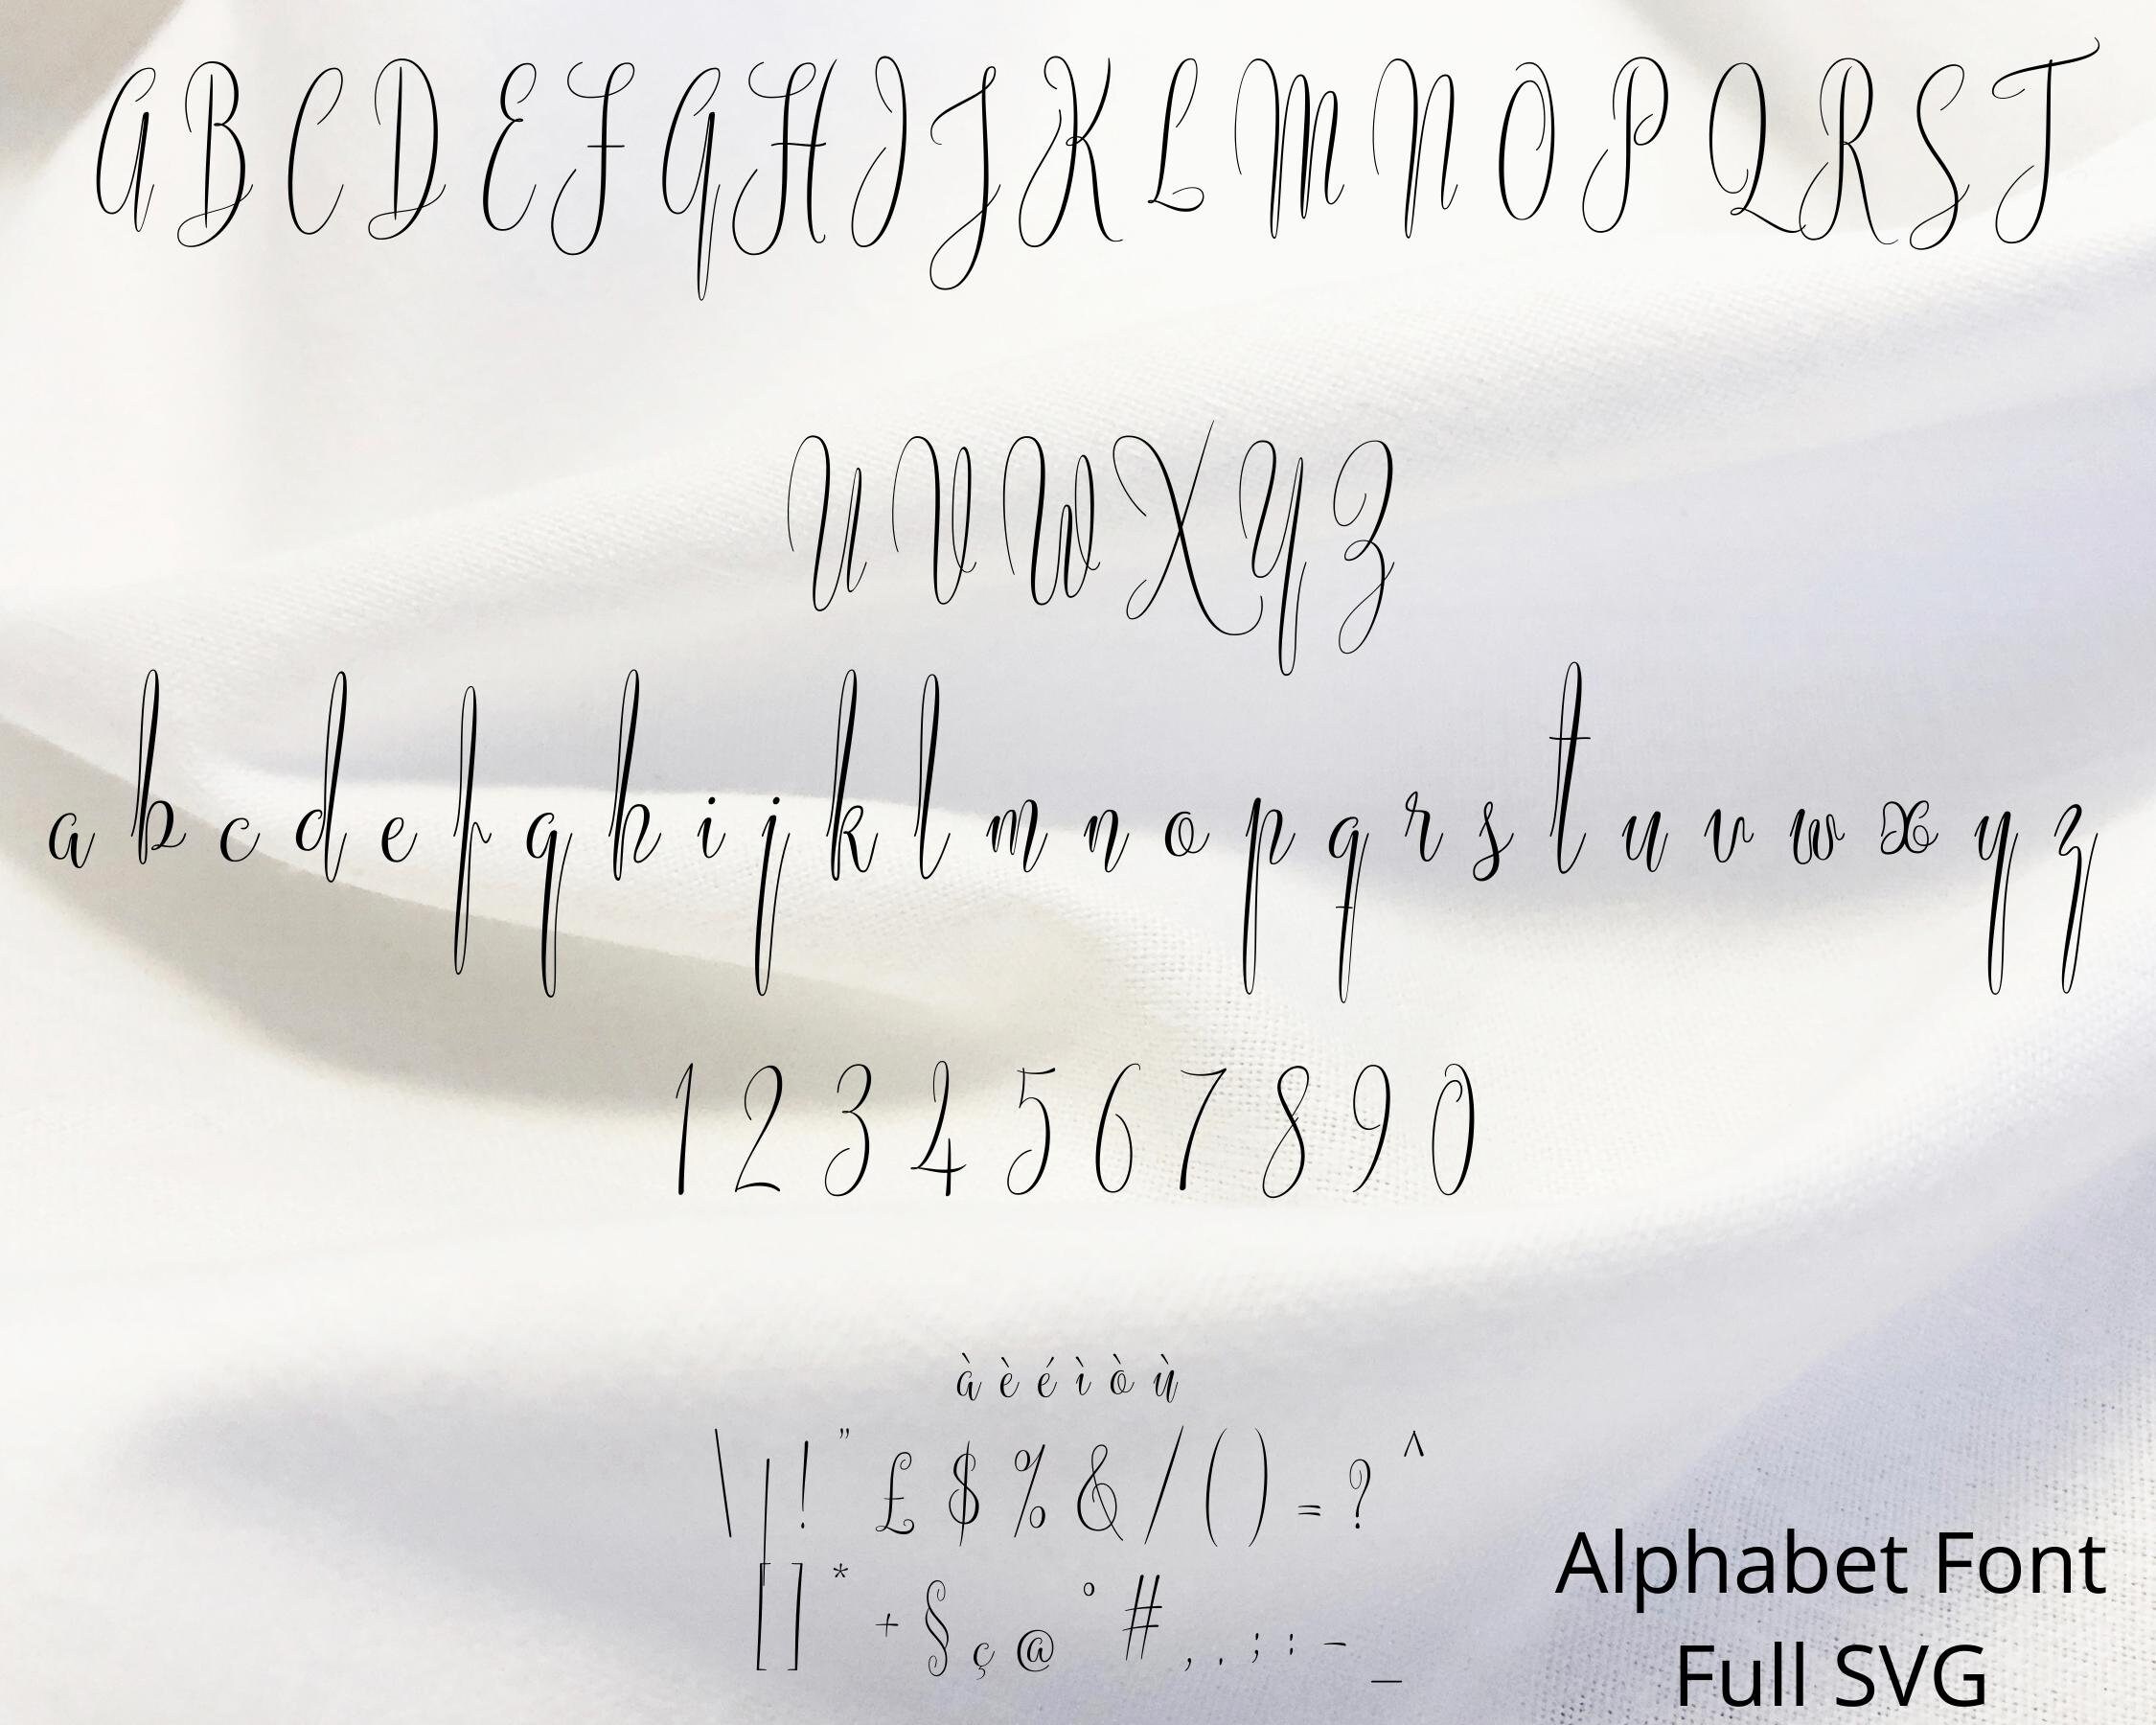 A B C D E F G H I J K L M N O P Q R S T
U V W X Y Z
a b c d e f g h i j k l m n o p q r s t u v w x y z
1 2 3 4 5 6 7 8 9 0
à è é ì ò ù
\ | ! " £ $ % & / ( ) = ? ^
[ ] * + § ç @ ° # , . ; : - _
Alphabet Font
Full SVG